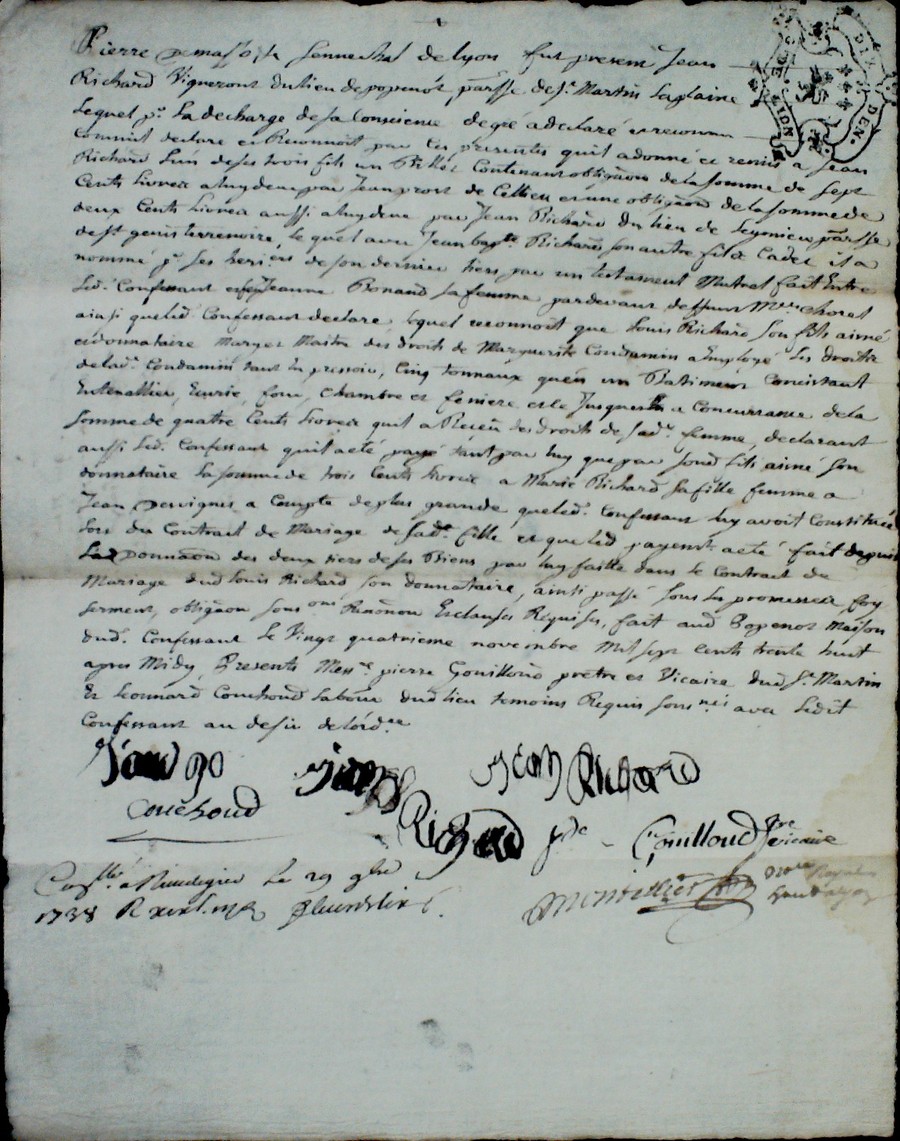 Pierre de masso Sennechal de lyon fut present Jean
Richard Vigneront du lieu de popenot, parsse de st. Martin Laplaine
Lequel pr. La decharge de sa Conscience de gré a declaré et reconnu
Comme declare et Reconnoit par Ces presentes quil a donné et remis a Jean
Richard L'un de ses trois fils un Billet Contenant obligãon de la somme de sept
Cents livres a luy deue par Jean prost de Cellieu et une obligãon de la somme de
deux Cents Livres aussi a luy deue par Jean Richard du lieu de Leymieu parsse
de st. genis terrenoire, le quel avec Jean bapte. Richard son autre fils Cadet il a
nommé pr. ses heriers de son dernier tiers par un testament Mutuel fait Entre
Led. Confessant et Jeanne Bonand sa femme pardevant deffunt Mre. Choret
ainsi que led. Confessant declare, lequel reconnoit que Louis Richard son fils aisné
et donnataire Mary et Maitre des droits de Marguerite Condamin a Employé les droits
de lad. Condamin tant En pressoir, Cinq tonnaux qu'en un Batiment Concistant
Ecurie, four, Chambre et feniere et ce Jusques a Concurrance de la
somme de quatre Cents Livres quil a Receu des droits de sad. femme, declarant
aussi Led. Confessant quil a eté payé tant par luy que par soud fils aisné son
donnataire la somme de trois Cents livres a Marie Richard sa fille femme a
Jean Desvignes a Compte de plus grande que led. Confessant luy avoit Constitué
lors du Contract de Mariage de sad. fille et que led payemt. a eté fait depuis
La Donnãon des deux tiers de ses Biens par luy faitte dans le Contract de
Mariage dud Louis Richard son donnataire, ainsi passé sous les promesses foy
serment, obligãon sousons Renõnon Esclauses Requises, fait aud Popenot Maison
dud. Confessant Le Vingt quatrieme novembre Mil sept cents trente huit
apres Midy, Presents Messre. pierre Gouilloud pretre et Vicaire dud st. Martin
Et Leonnard Couchoud Labour. dud lieu temoins Requis sousnés avec Ledit
Confessant au desir de l'ordce.
Jean Richard
Couchoud
Richard
Gouilloud ptre vicaire
Montellier Nore Royal
Con.llé a Rivedegier Le 29 9bre
1738 R